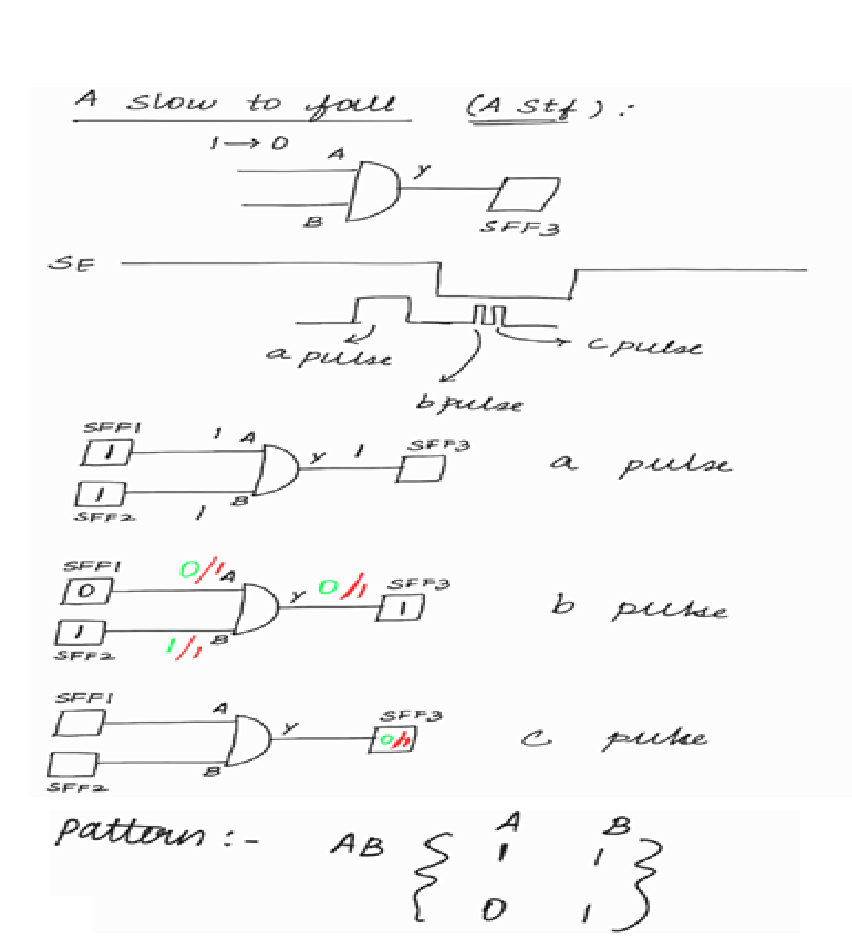 A slow to fall (A Stf) :
1 → 0
A
Y
B
SFF3
SE
a pulse
c pulse
b pulse
SFF1
1 A
SFF3
1
Y 1
a pulse
1
B
SFF2
1
SFF1
0/1 A
0
Y 0/1
SFF3
1
b pulse
1
B
SFF2
1/1
SFF1
A
SFF3
Y
0/1
c pulse
B
SFF2
Pattern :-
A B
AB { 1 1 }
0 1